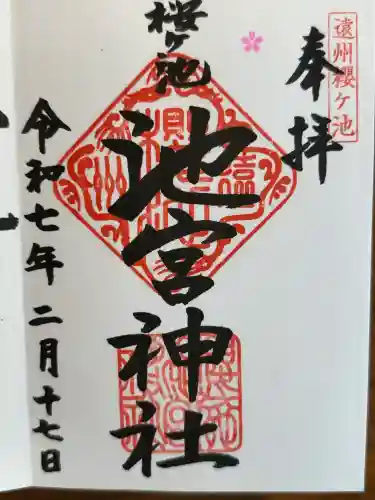 遠州櫻ケ池
奉拝
櫻ヶ池
池宮神社
令和七年二月十七日